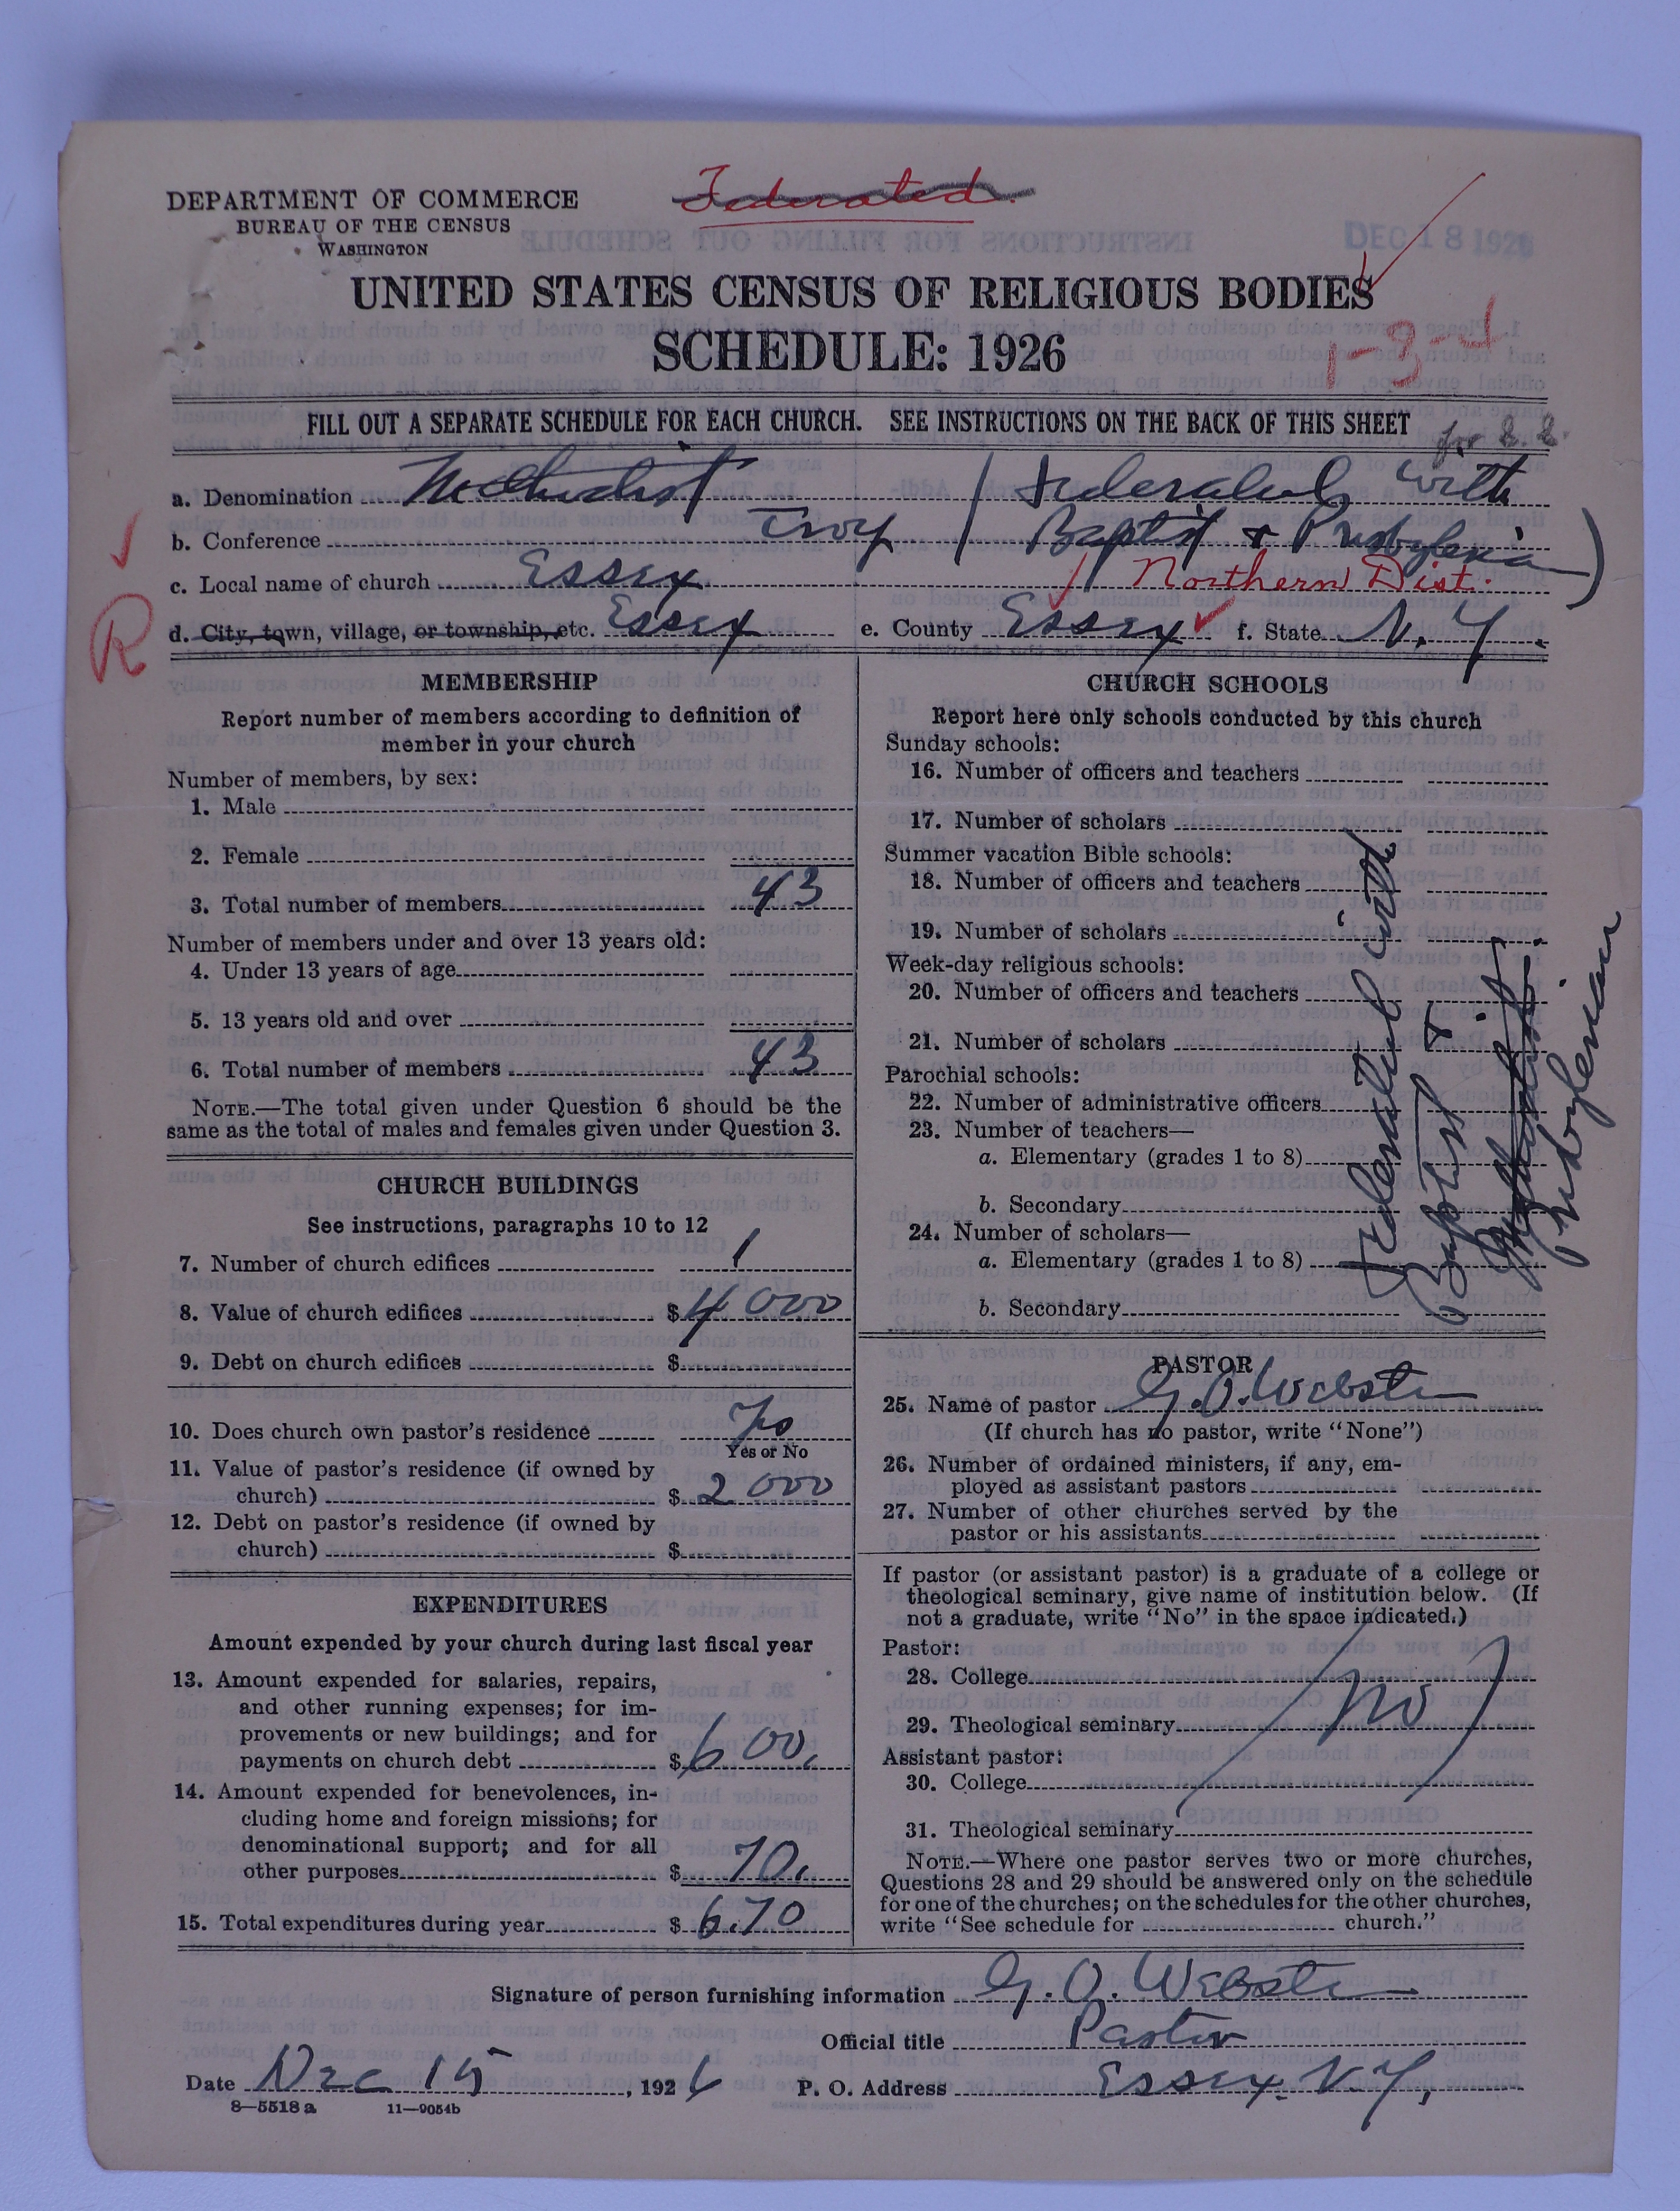 Federated.
DEPARTMENT OF COMMERCE
BUREAU OF THE CENSUS
WASHINGTON
DEC 18 1926
UNITED STATES CENSUS OF RELIGIOUS BODIES
SCHEDULE: 1926
1-3-4
FILL OUT A SEPARATE SCHEDULE FOR EACH CHURCH. SEE INSTRUCTIONS ON THE BACK OF THIS SHEET
a. Denomination Methodist / Federated with
b. Conference Troy / Baptist & Presbyterian)
c. Local name of church Essex Northern Dist.
R
d. City, town, village, or township, etc. Essex e. County Essex f. State N. Y.
MEMBERSHIP
Report number of members according to definition of
member in your church
Number of members, by sex:
1. Male
2. Female
3. Total number of members 43
Number of members under and over 13 years old:
4. Under 13 years of age
5. 13 years old and over
6. Total number of members 43
NOTE.—The total given under Question 6 should be the
same as the total of males and females given under Question 3.
CHURCH BUILDINGS
See instructions, paragraphs 10 to 12
7. Number of church edifices 1
8. Value of church edifices $ 4000
9. Debt on church edifices $
10. Does church own pastor's residence Yes
Yes or No
11. Value of pastor's residence (if owned by
church) $ 2000
12. Debt on pastor's residence (if owned by
church) $
EXPENDITURES
Amount expended by your church during last fiscal year
13. Amount expended for salaries, repairs,
and other running expenses; for im-
provements or new buildings; and for
payments on church debt $ 600.
14. Amount expended for benevolences, in-
cluding home and foreign missions; for
denominational support; and for all
other purposes $ 70.
15. Total expenditures during year $ 670
CHURCH SCHOOLS
Report here only schools conducted by this church
Sunday schools:
16. Number of officers and teachers
17. Number of scholars
Summer vacation Bible schools:
18. Number of officers and teachers
19. Number of scholars
Week-day religious schools:
20. Number of officers and teachers
21. Number of scholars
Parochial schools:
22. Number of administrative officers
23. Number of teachers—
a. Elementary (grades 1 to 8)
b. Secondary
24. Number of scholars—
a. Elementary (grades 1 to 8)
b. Secondary
Federated with
Baptist &
Methodist
Presbyterian
PASTOR
25. Name of pastor G. O. Webster
(If church has no pastor, write "None")
26. Number of ordained ministers, if any, em-
ployed as assistant pastors
27. Number of other churches served by the
pastor or his assistants
If pastor (or assistant pastor) is a graduate of a college or
theological seminary, give name of institution below. (If
not a graduate, write "No" in the space indicated.)
Pastor:
28. College
29. Theological seminary No
Assistant pastor:
30. College
31. Theological seminary
NOTE.—Where one pastor serves two or more churches,
Questions 28 and 29 should be answered only on the schedule
for one of the churches; on the schedules for the other churches,
write "See schedule for church."
Signature of person furnishing information G. O. Webster
Official title Pastor
Date Dec 15, 1926 P. O. Address Essex. N.Y.
8—5518a 11—9054b